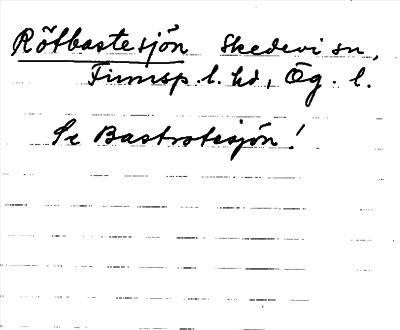 Rötbastesjön Skedevi sn,
Finnsp. l. hd, Ög. l.
Se Bastrotesjön!